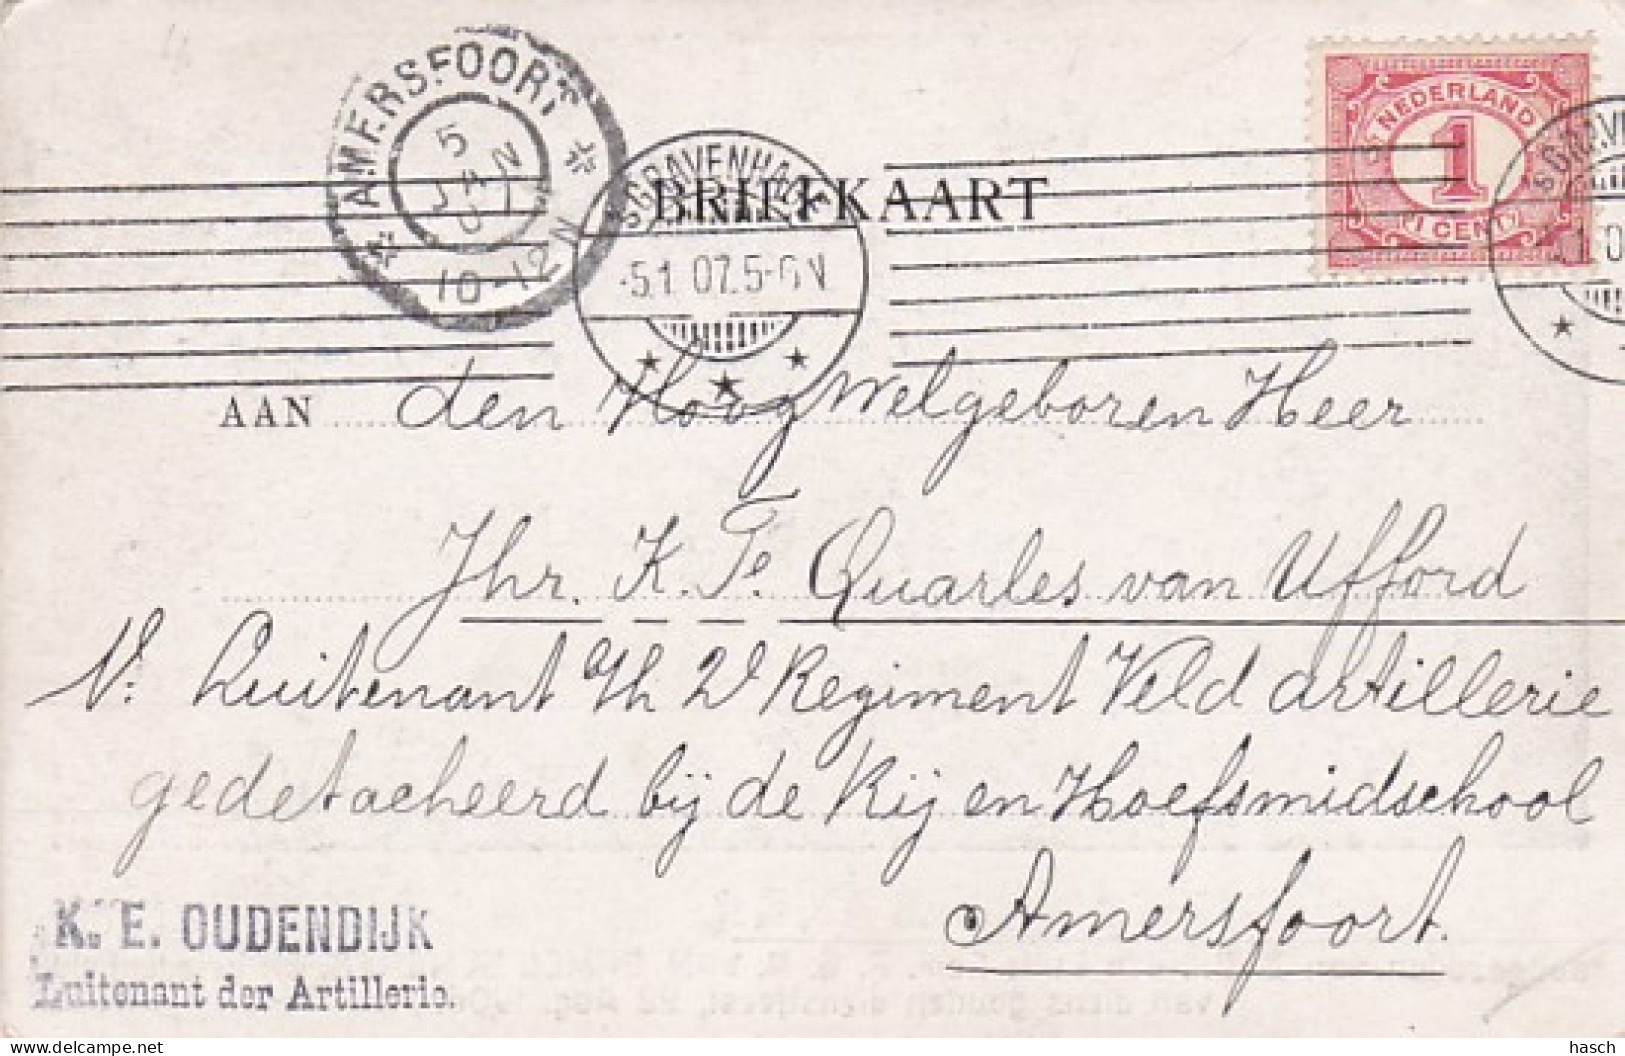 AMERSFOORT
5 JAN 07
10-12N
'SGRAVENHAGE
-5.1.07.5-6N
NEDERLAND
1
1 CENT
BRIEFKAART
AAN den HoogWelgeboren Heer
Jhr. K. F.e Quarles van Ufford
1e Luitenant v/h 2e Regiment Veld artillerie
gedetacheerd bij de Rij en Hoefsmidschool
Amersfoort.
K. E. OUDENDIJK
Luitenant der Artillerie.
hasch